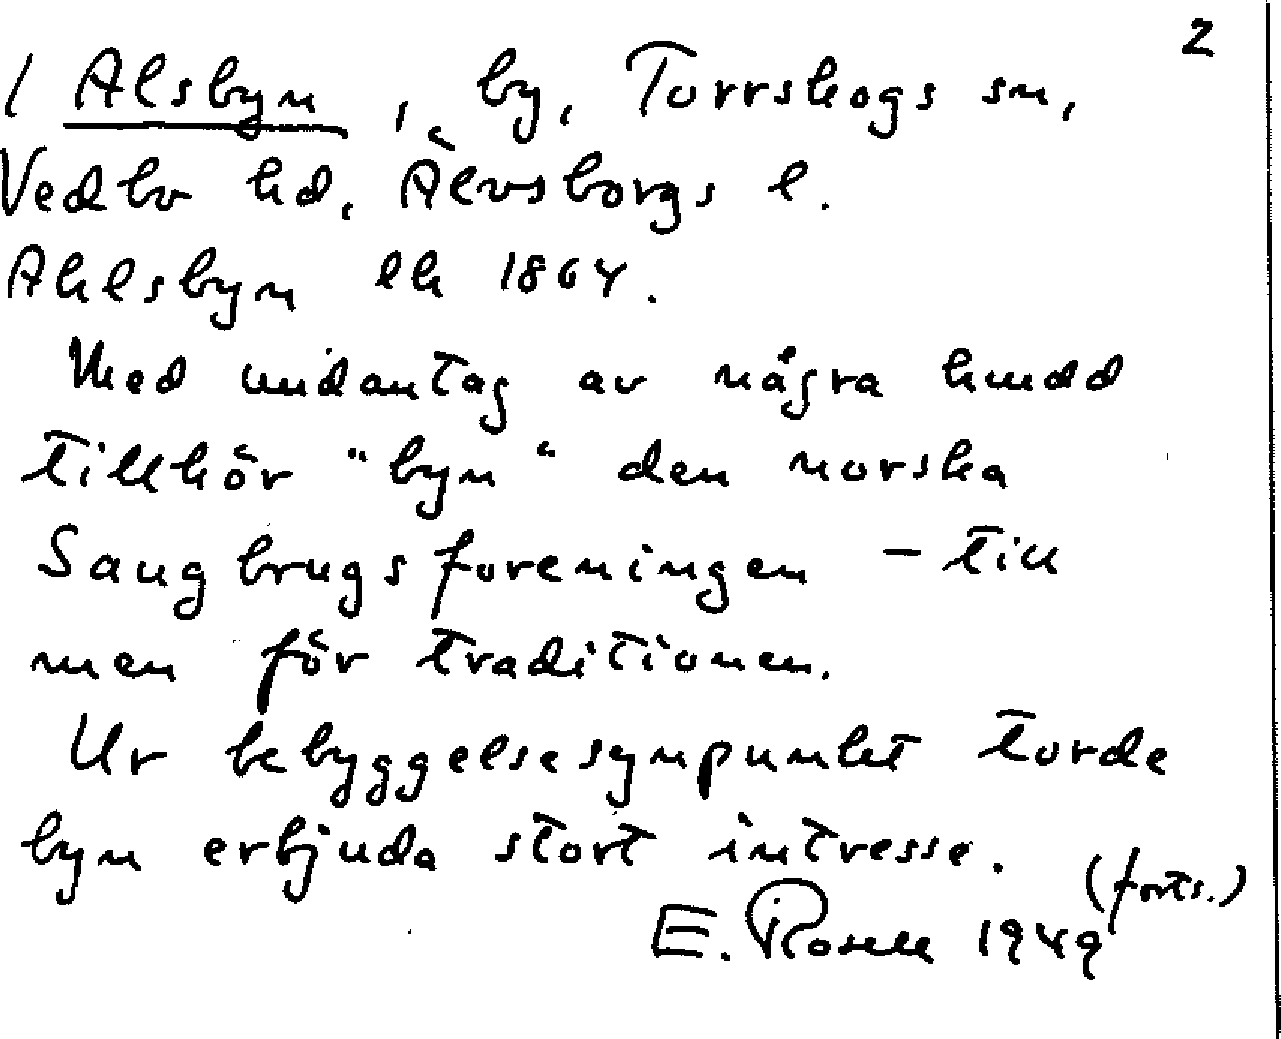 2
/ Alsbyn, by, Torrskogs sn,
Vedbo hd, Älvsborgs l.
Ahlsbyn ek 1864.
Med undantag av några hmdd
tillhör "byn" den norska
Saugbrugsforeningen – till
men för traditionen.
Ur bebyggelsesynpunkt torde
byn erbjuda stort intresse.
(forts.)
E. Rosell 1949